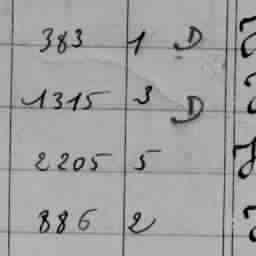 383 1 D
1315 3 D
2205 5
886 2